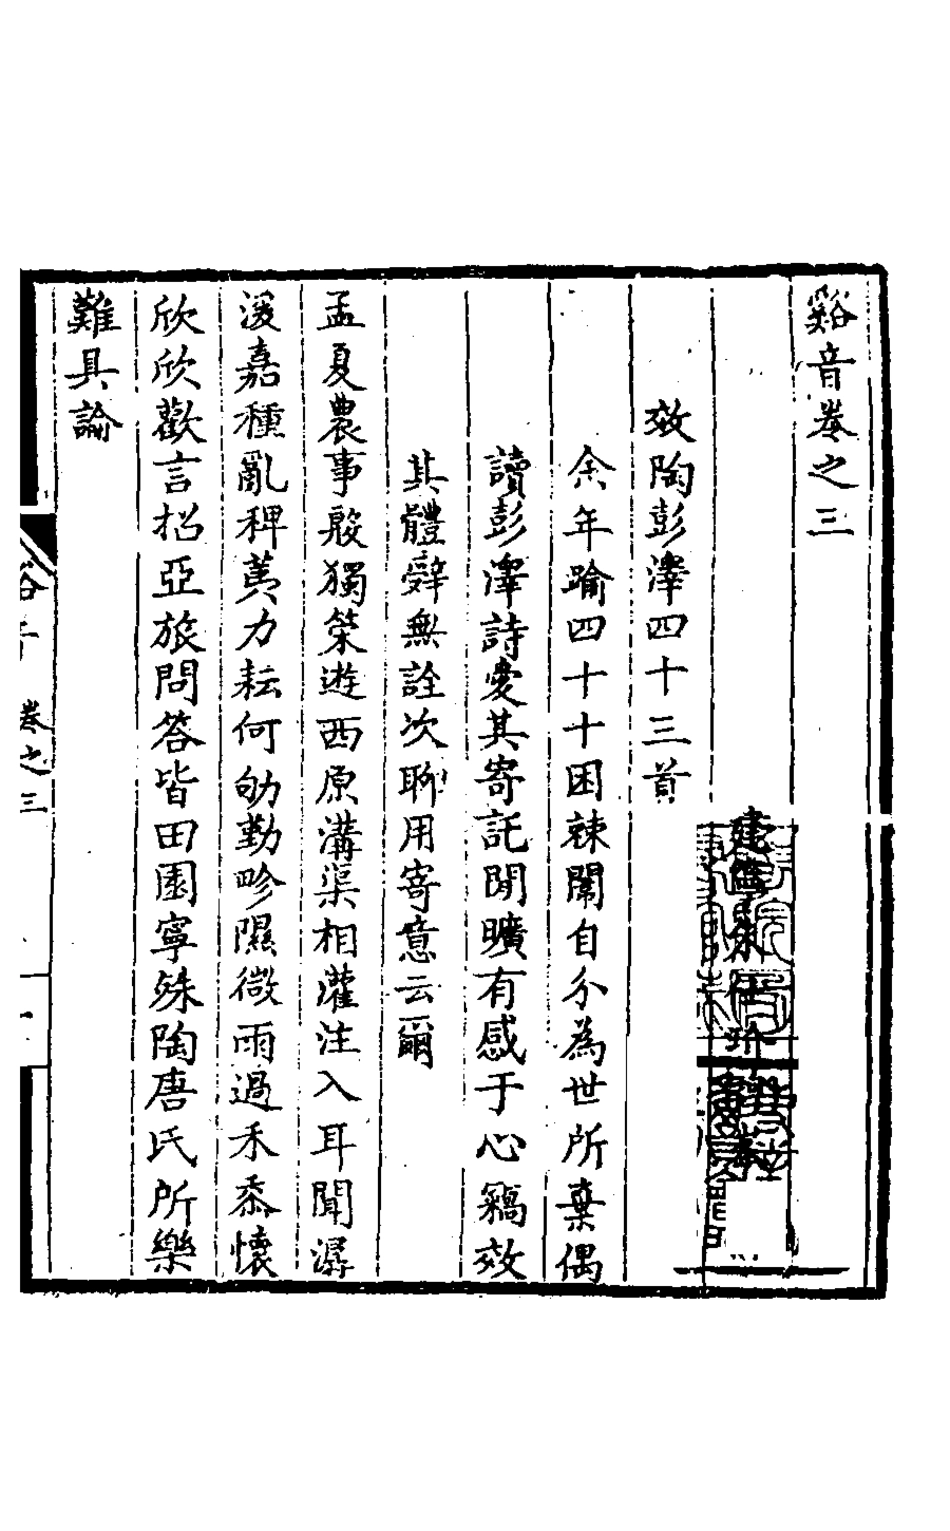 谿音卷之三
建寧朱仕玠
效陶彭澤四十三首
余年踰四十十困棘闈自分為世所棄偶
讀彭澤詩愛其寄託閒曠有感于心竊效
其體辭無詮次聊用寄意云爾
孟夏農事殷獨策遊西原溝渠相灌注入耳聞潺
湲嘉種亂稗荑力耘何劬勤畛隰微雨過禾黍懷
欣欣歡言招亞旅問答皆田園寧殊陶唐氏所樂
難具論
卷之三